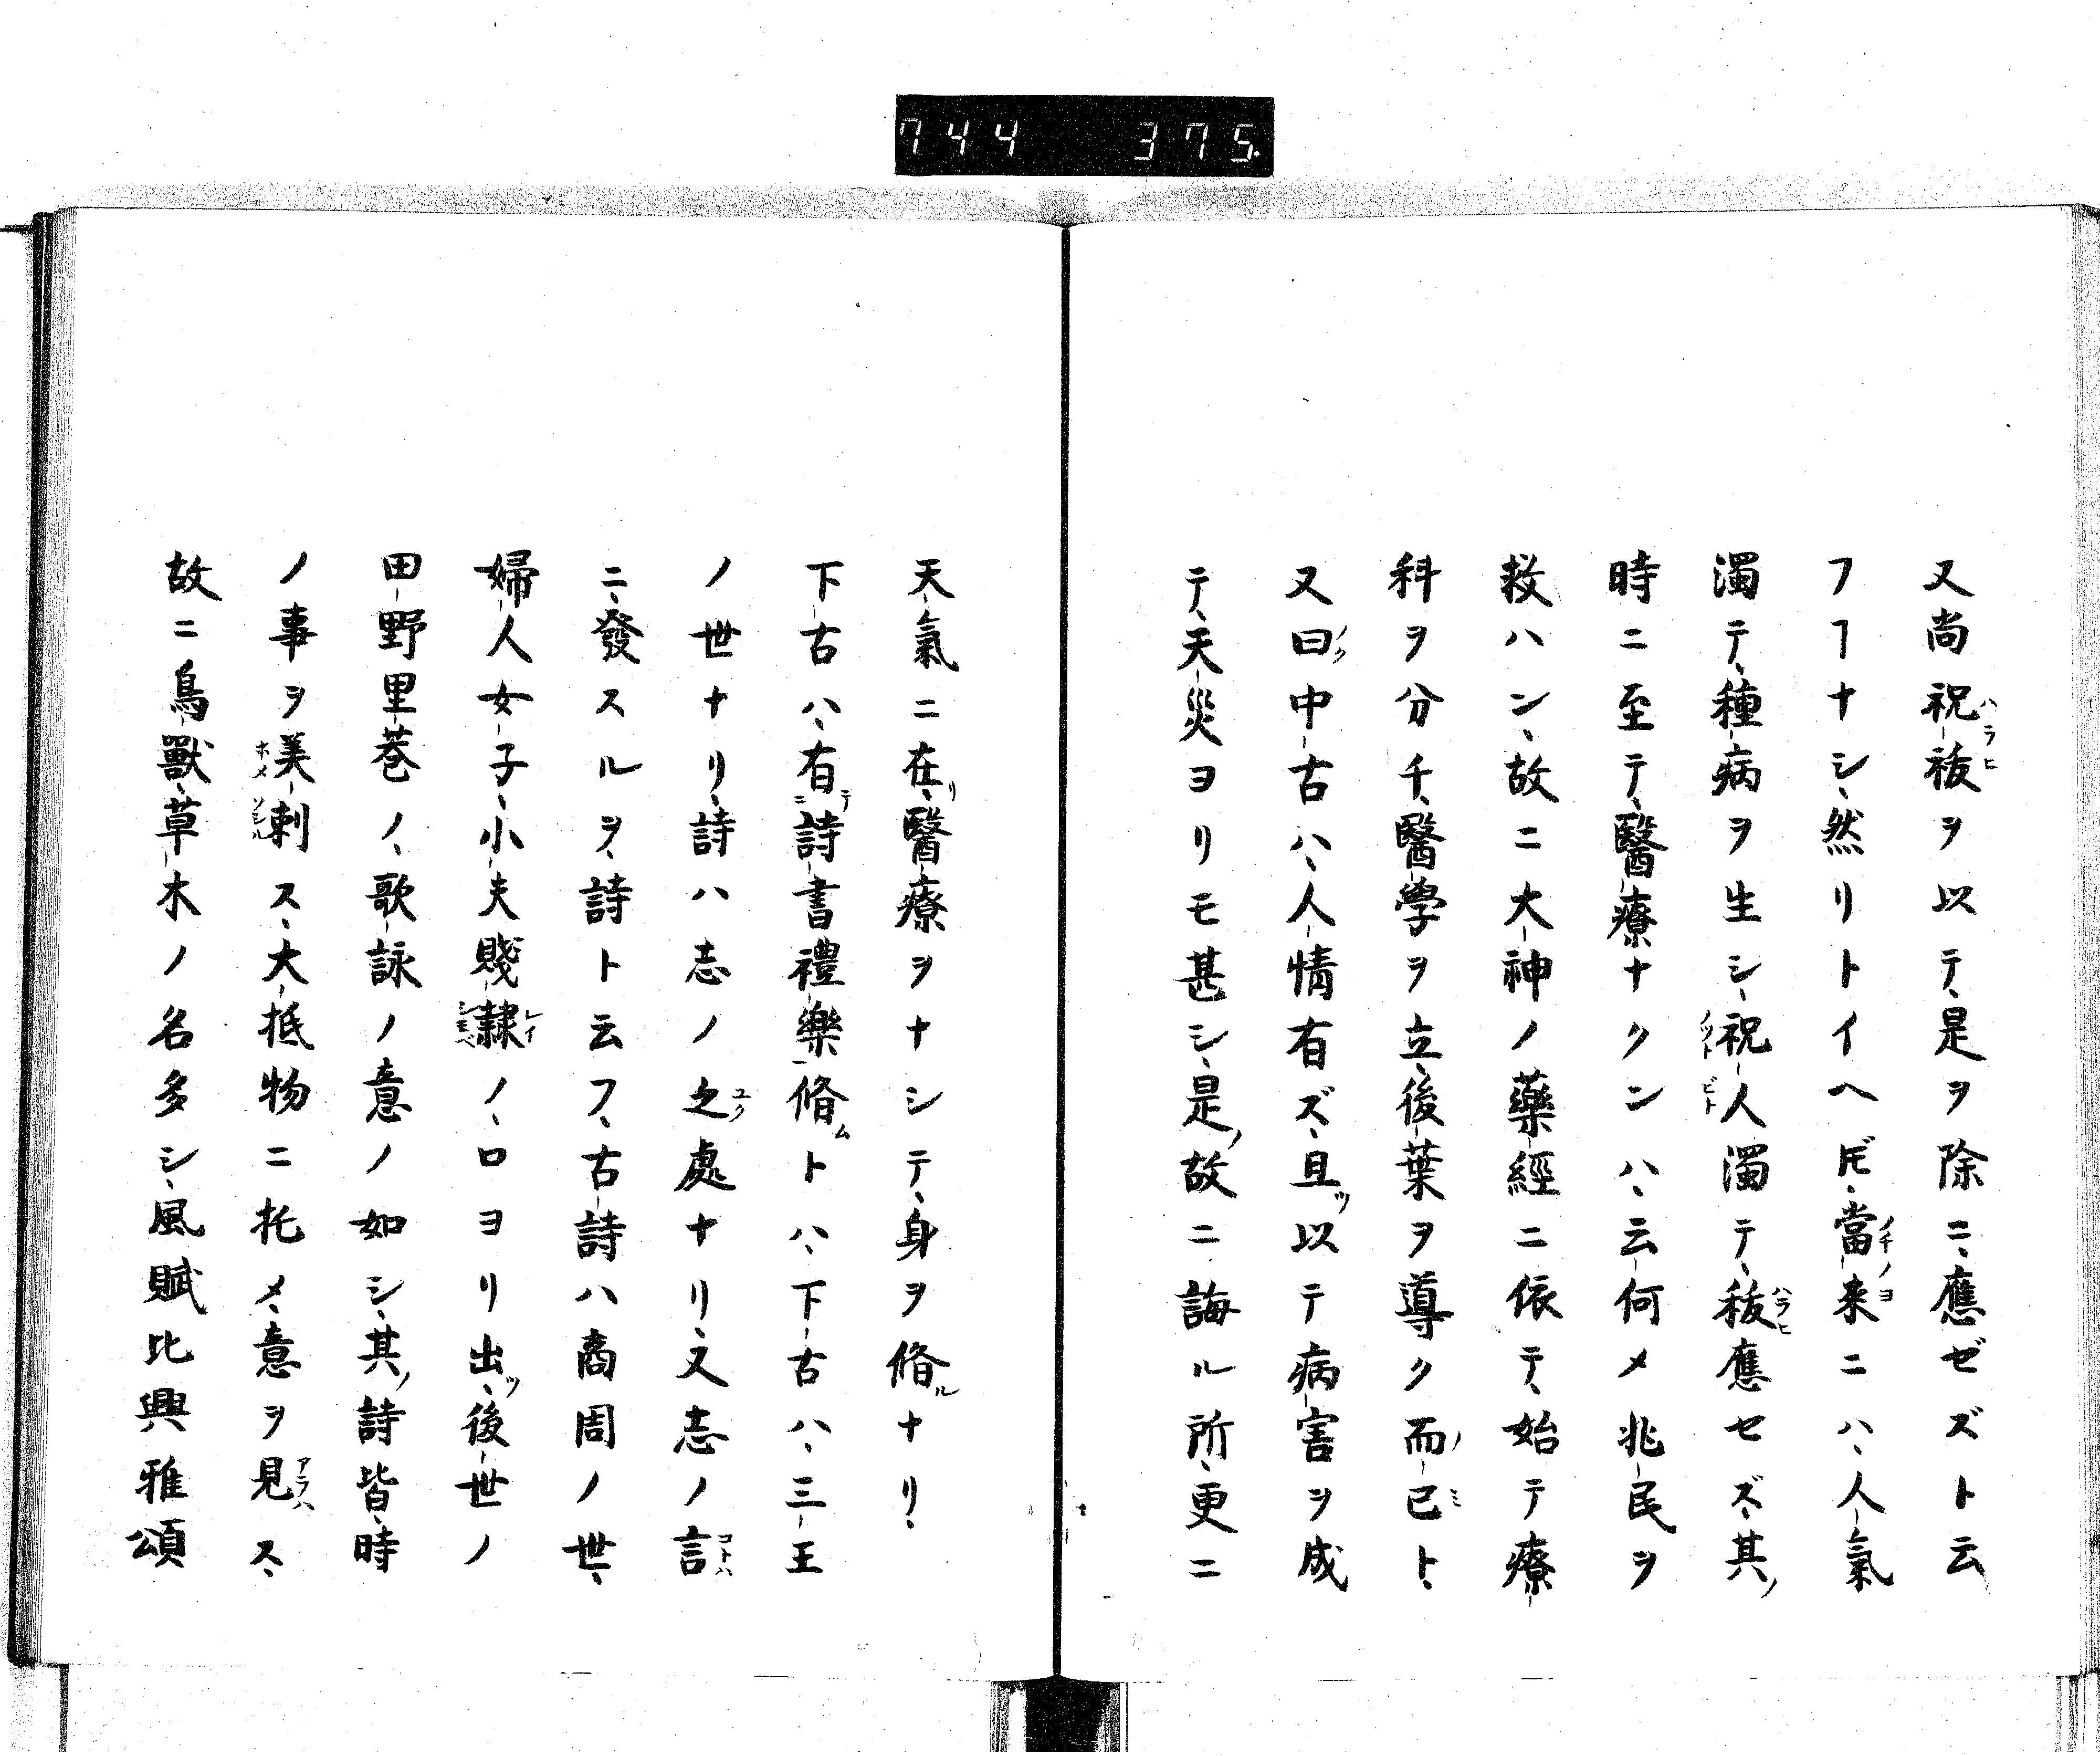 744 375
又尚祝祓ヲ以テ、是ヲ除ニ、應ゼズト云
フヿナシ、然リトイヘ𪜈、當来ニハ、人氣
濁テ、種病ヲ生シ、祝人濁テ、祓應セズ、其
時ニ至テ、醫療ナクンハ、云何メ兆民ヲ
救ハン、故ニ大神ノ藥經ニ依テ、始テ療
科ヲ分チ、醫學ヲ立、後葉ヲ導ク而已ト、
又曰中古ハ、人情有ズ、且以テ病害ヲ成
テ、天災ヨリモ甚シ、是故ニ誨ル所、更ニ
天氣ニ在、醫療ヲナシテ、身ヲ脩ナリ、
下古ハ、有詩書禮樂脩ト八、下古八、三王
ノ世ナリ、詩ハ志ノ之處ナリ、又志ノ言
ニ、發スルヲ、詩ト云フ、古詩ハ商周ノ世、
婦人女子、小夫賤隷ノ、口ヨリ出、後世ノ
田野里巷ノ、歌詠ノ意ノ如シ、其詩皆、時
ノ事ヲ美刺ス、大抵物ニ托メ、意ヲ見ス、
故ニ鳥獸、草木ノ名多シ、風賦比興雅頌